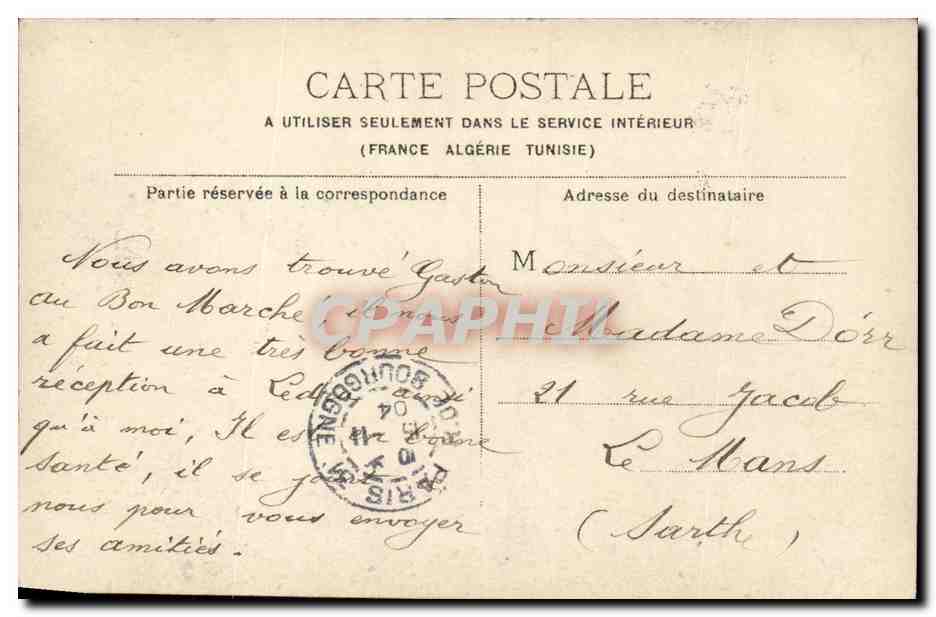 CARTE POSTALE
A UTILISER SEULEMENT DANS LE SERVICE INTÉRIEUR
(FRANCE ALGÉRIE TUNISIE)
Partie réservée à la correspondance
Nous avons trouvé Gaston
au Bon Marché, il nous
a fait une très bonne
réception à ainsi
qu'à moi, Il est en bonne
santé, il se joint
nous pour vous envoyer
ses amitiés.
Adresse du destinataire
Monsieur et
Madame Dörr
21 rue Jacob
Le Mans
(Sarthe)
CPAPHIL
PARIS
R. DE BOURGOGNE
04